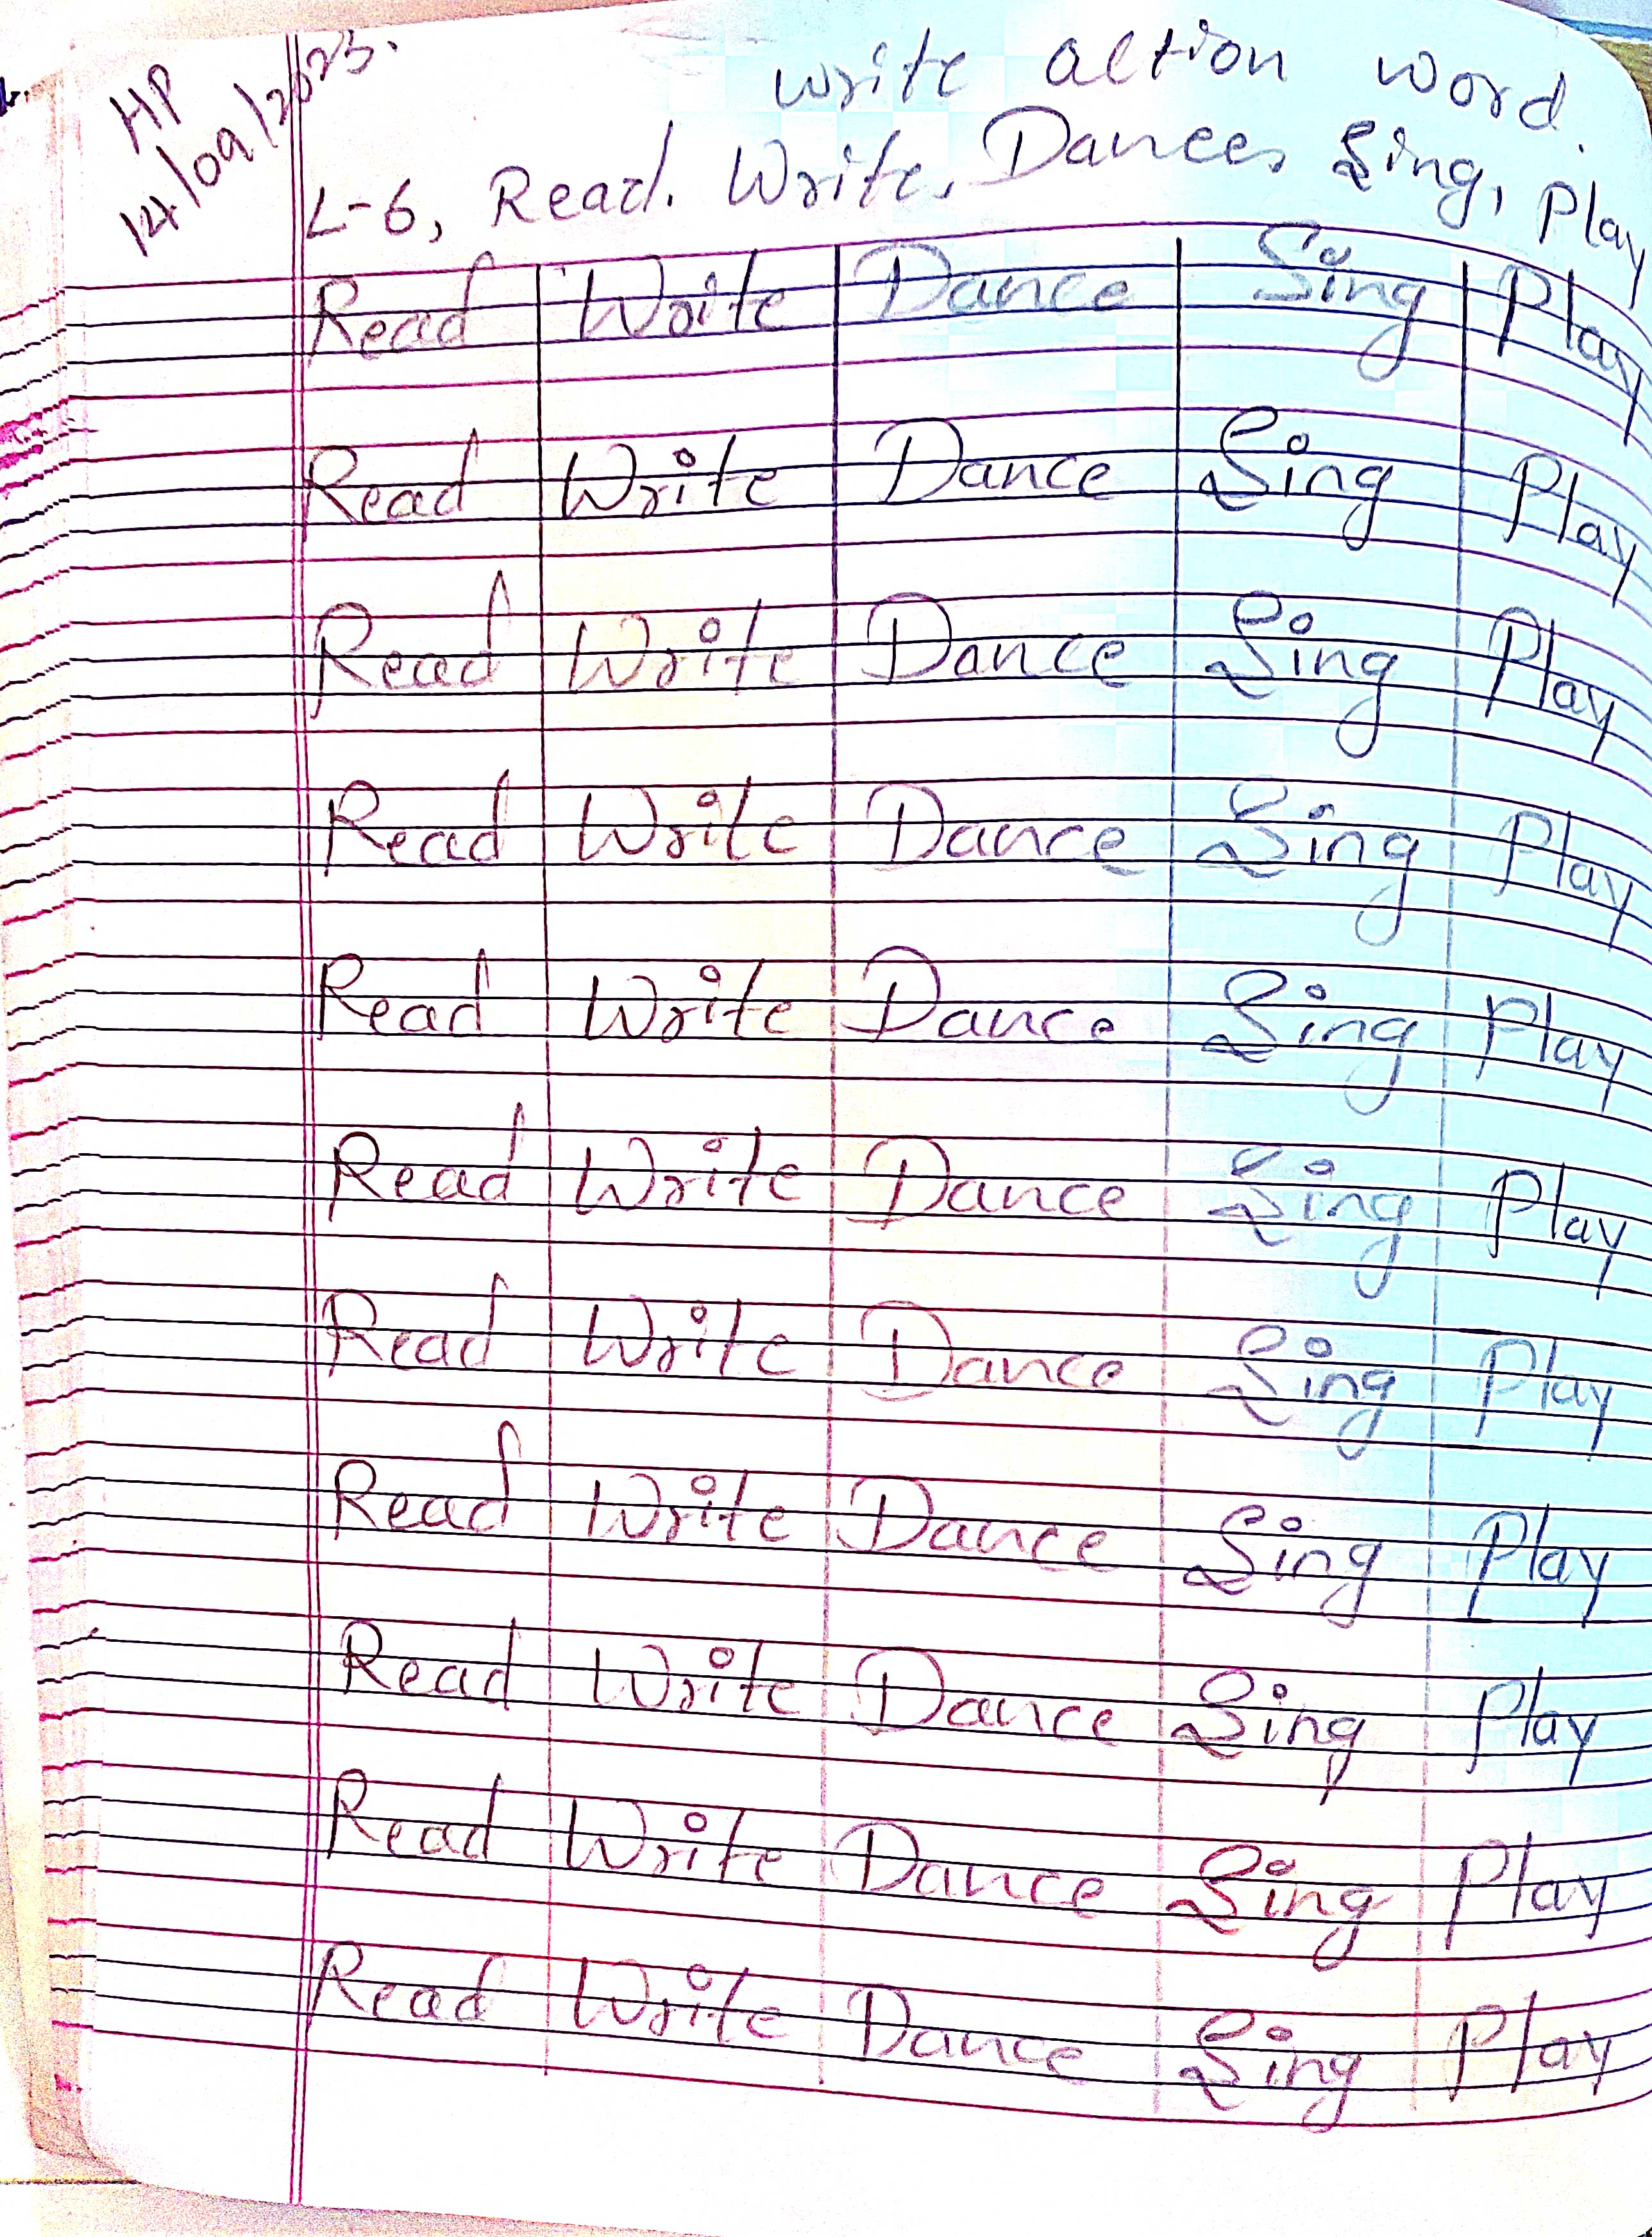 HP
14/09/2023.
write action word.
L-6, Read. Write, Dance, Sing, Play
Read Write Dance Sing Play
Read Write Dance Sing Play
Read Write Dance Sing Play
Read Write Dance Sing Play
Read Write Dance Sing Play
Read Write Dance Sing Play
Read Write Dance Sing Play
Read Write Dance Sing Play
Read Write Dance Sing Play
Read Write Dance Sing Play
Read Write Dance Sing Play